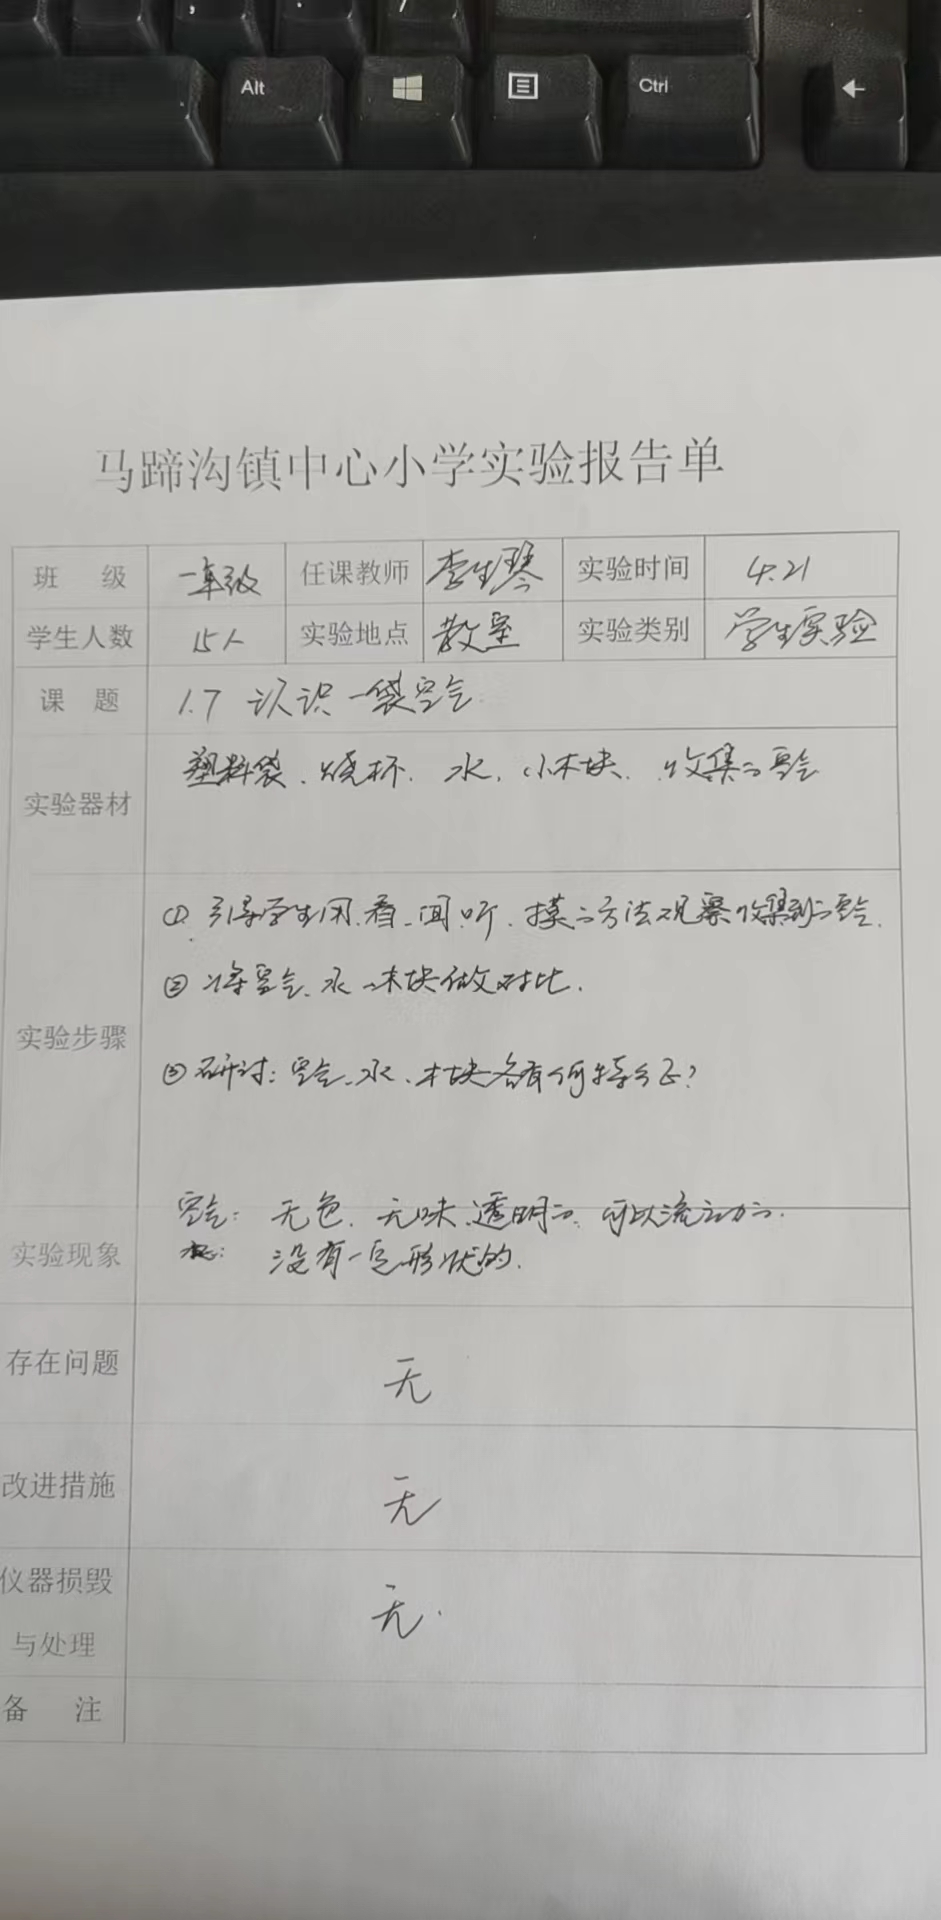 Alt
Ctrl
马蹄沟镇中心小学实验报告单
班 级 一年级 任课教师 李生琴 实验时间 4.21
学生人数 15人 实验地点 教室 实验类别 学生实验
课 题 1.7 认识一袋空气
实验器材 塑料袋、烧杯、水、小木块、收集的空气
实验步骤
① 引导学生用、看、闻、听、摸的方法观察收集到的空气.
② 将空气、水、木块做对比.
③ 研讨: 空气、水、木块各有何特征?
实验现象
空气: 无色、无味、透明的、可以流动的.
没有一定形状的.
存在问题 无
改进措施 无
仪器损毁
与处理 无.
备 注